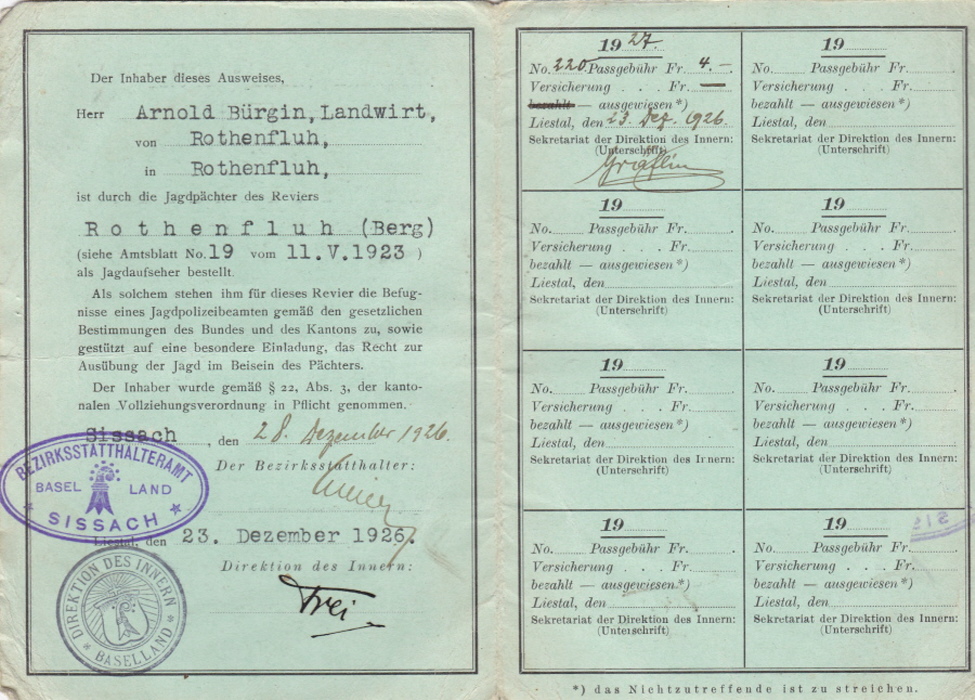 Der Inhaber dieses Ausweises,
Herr Arnold Bürgin, Landwirt,
von Rothenfluh,
in Rothenfluh,
ist durch die Jagdpächter des Reviers
Rothenfluh (Berg)
(siehe Amtsblatt No. 19 vom 11.V.1923 )
als Jagdaufseher bestellt.
Als solchem stehen ihm für dieses Revier die Befug-
nisse eines Jagdpolizeibeamten gemäß den gesetzlichen
Bestimmungen des Bundes und des Kantons zu, sowie
gestützt auf eine besondere Einladung, das Recht zur
Ausübung der Jagd im Beisein des Pächters.
Der Inhaber wurde gemäß § 22, Abs. 3, der kanto-
nalen Vollziehungsverordnung in Pflicht genommen.
Sissach, den 28. Dezember 1926.
Der Bezirksstatthalter:
BEZIRKSSTATTHALTERAMT
BASEL LAND
SISSACH
Liestal, den 23. Dezember 1926.
Direktion des Innern:
Frei
DIREKTION DES INNERN
BASELLAND
1927.
No. 220 Passgebühr Fr. 4.–
Versicherung . . . Fr. —
bezahlt — ausgewiesen*)
Liestal, den 23. Dez. 1926.
Sekretariat der Direktion des Innern:
(Unterschrift)
19
No. Passgebühr Fr. .
Versicherung . . . Fr.
bezahlt — ausgewiesen*)
Liestal, den
Sekretariat der Direktion des Innern:
(Unterschrift)
19
No. Passgebühr Fr. .
Versicherung . . . Fr.
bezahlt — ausgewiesen*)
Liestal, den
Sekretariat der Direktion des Innern:
(Unterschrift)
19
No. Passgebühr Fr. .
Versicherung . . . Fr.
bezahlt — ausgewiesen*)
Liestal, den
Sekretariat der Direktion des Innern:
(Unterschrift)
19
No. Passgebühr Fr. .
Versicherung . . . Fr.
bezahlt — ausgewiesen*)
Liestal, den
Sekretariat der Direktion des Innern:
(Unterschrift)
19
No. Passgebühr Fr. .
Versicherung . . . Fr.
bezahlt — ausgewiesen*)
Liestal, den
Sekretariat der Direktion des Innern:
(Unterschrift)
19
No. Passgebühr Fr. .
Versicherung . . . Fr.
bezahlt — ausgewiesen*)
Liestal, den
Sekretariat der Direktion des Innern:
(Unterschrift)
19
No. Passgebühr Fr. .
Versicherung . . . Fr.
bezahlt — ausgewiesen*)
Liestal, den
Sekretariat der Direktion des Innern:
(Unterschrift)
*) das Nichtzutreffende ist zu streichen.